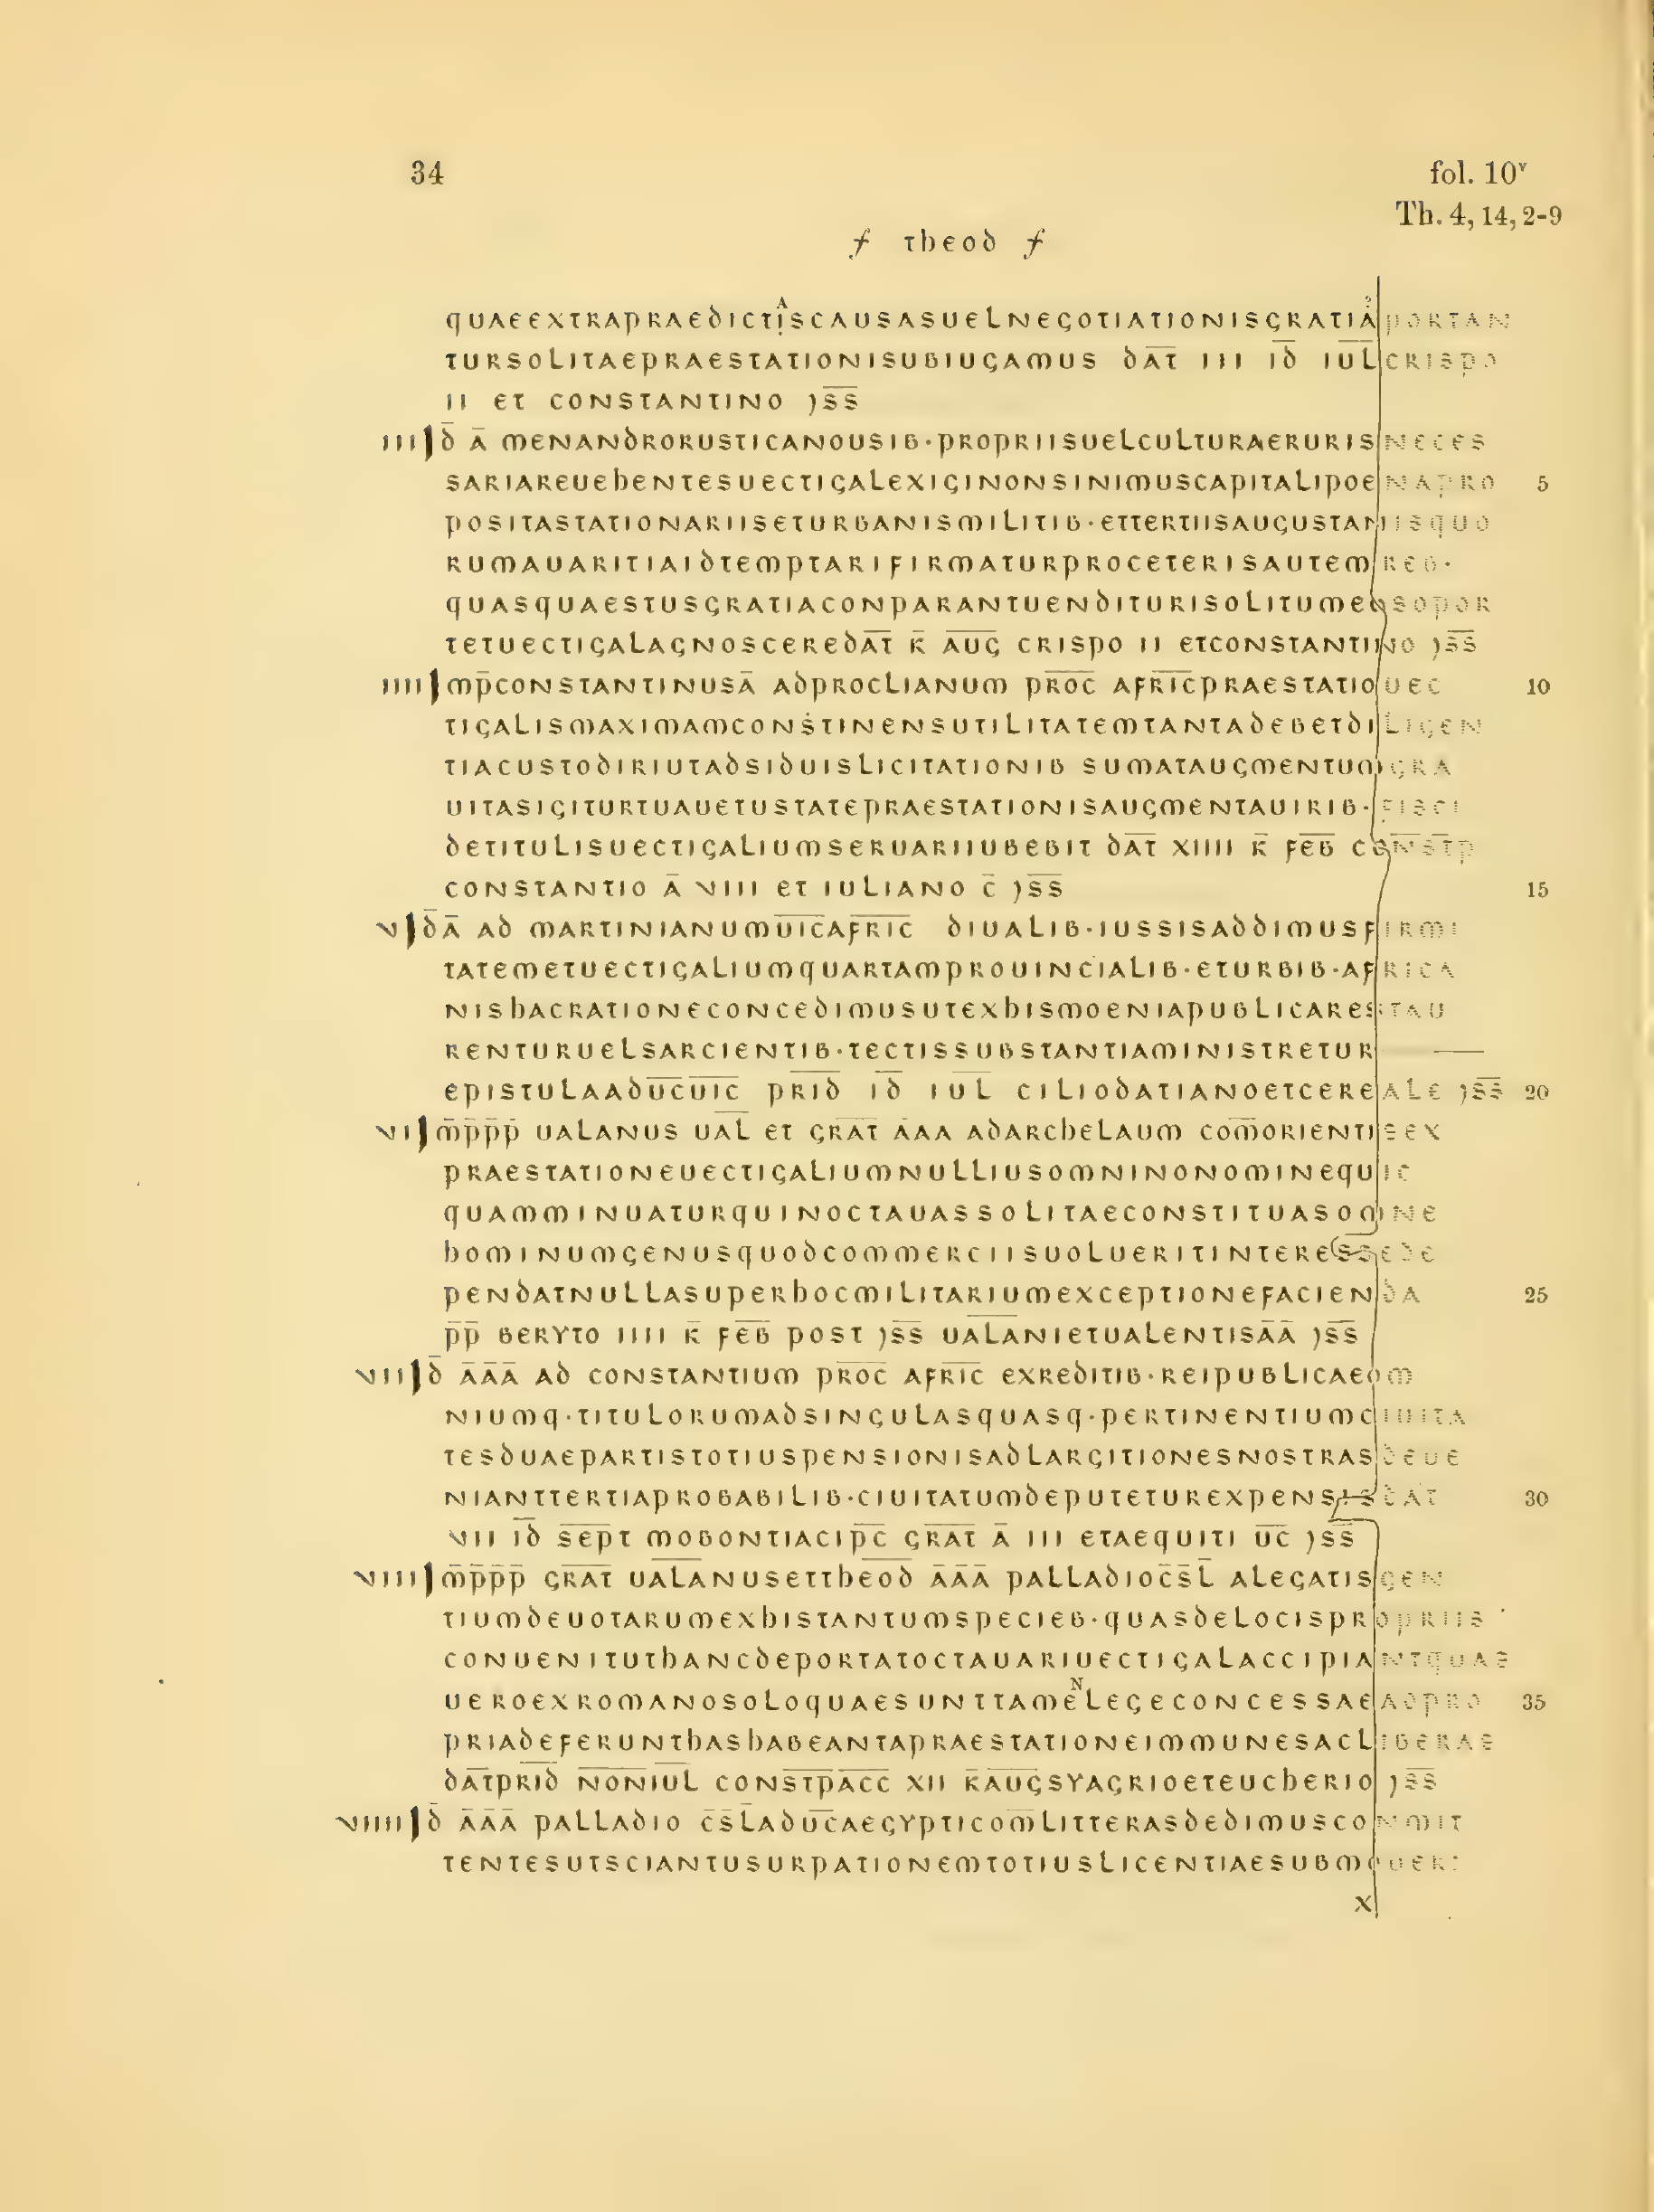 34
fol. 10v
Th. 4, 14, 2-9
ƒ theod ƒ
quaeextrapraedictiscausasuelnegotiationisgratiaportan
A
?
tursolitaepraestationisubiugamus dat̅ iii id̅ iul̅ crispo
ii et constantino )s̅s̅
iii d̅ a̅ menandrorusticanousib·propriisuelculturaeruris neces
sariareuehentesuectigalexiginonsinimuscapitalipoenapro 5
positastationariiseturbanismilitib·ettertiisaugustaniisquo
rumauaritiaidtemptarifirmaturproceterisautem reb·
quasquaestusgratiaconparantuenditurisolitumeosopor
tetuectigalagnosceredat̅ k̅ aug̅ crispo ii etconstantino )s̅s̅
iiii mp̅constantinusa̅ adproclianum proc̅ afric̅praestatiouec 10
tigalismaximamconṡtinensutilitatemtantadebetdiligen
tiacustodiriutadsiduislicitationib sumataugmentumgra
uitasigiturtuauetustatepraestationisaugmentauirib·fisci
detitulisuectigaliumseruariiubebit dat̅ xiiii k̅ feb̅ const̅p̅
constantio a̅ viii et iuliano c̅ )s̅s̅ 15
v d̅a̅ ad martinianumuic̅afric̅ diualib·iussisaddimusfirmi
tatemetuectigaliumquartamprouincialib·eturbib·africa
nishacrationeconcedimusutexhismoeniapublicarestau
renturuelsarcientib·tectissubstantiaministretur
epistulaaduc̅uic̅ prid̅ id̅ iul̅ ciliodatianoetcereale )s̅s̅ 20
vi m̅p̅p̅p̅ ualanus ual̅ et grat̅ a̅aa adarchelaum com̅orientisex
praestationeuectigaliumnulliusomninonominequic
quamminuaturquinoctauassolitaeconstituasomne
hominumgenusquodcommerciisuolueritinteressede
pendatnullasuperhocmilitariumexceptionefacienda 25
p̅p̅ beryto iiii k̅ feb̅ post )s̅s̅ ualan̅ietualentisa̅a̅ )s̅s̅
vii d̅ a̅a̅a̅ ad constantium proc̅ afric̅ exreditib·reipublicaeom
niumq·titulorumadsingulasquasq·pertinentiumciuita
tesduaepartistotiuspensionisadlargitionesnostrasdeue
nianttertiaprobabilib·ciuitatumdeputeturexpensisdat 30
vii id̅ sept̅ mogontiacip̅c̅ grat̅ a̅ iii etaequiti uc̅ )s̅s̅
viiii m̅p̅p̅p̅ grat̅ ualan̅usettheod̅ a̅a̅a̅ palladioc̅s̅l̅ alegatisgen
tiumdeuotarumexhistantumspecieb·quasdelocispropriis
conuenitutthancdeportatoctauariuectigalaccipiantquae
ueroexromanosoloquaesunttamelegeconcessaeadpro 35
N
priadeferunthashabeantapraestationeimmunesacliberae
dat̅prid̅ non̅iul̅ const̅p̅acc̅ xii k̅aug̅syagrioeteucherio )s̅s̅
viiii d̅ a̅a̅a̅ palladio c̅s̅l̅aduc̅aegypticom̅litterasdedimusconmit
tentesutsciantusurpationemtotiuslicentiaesubmoueri
x